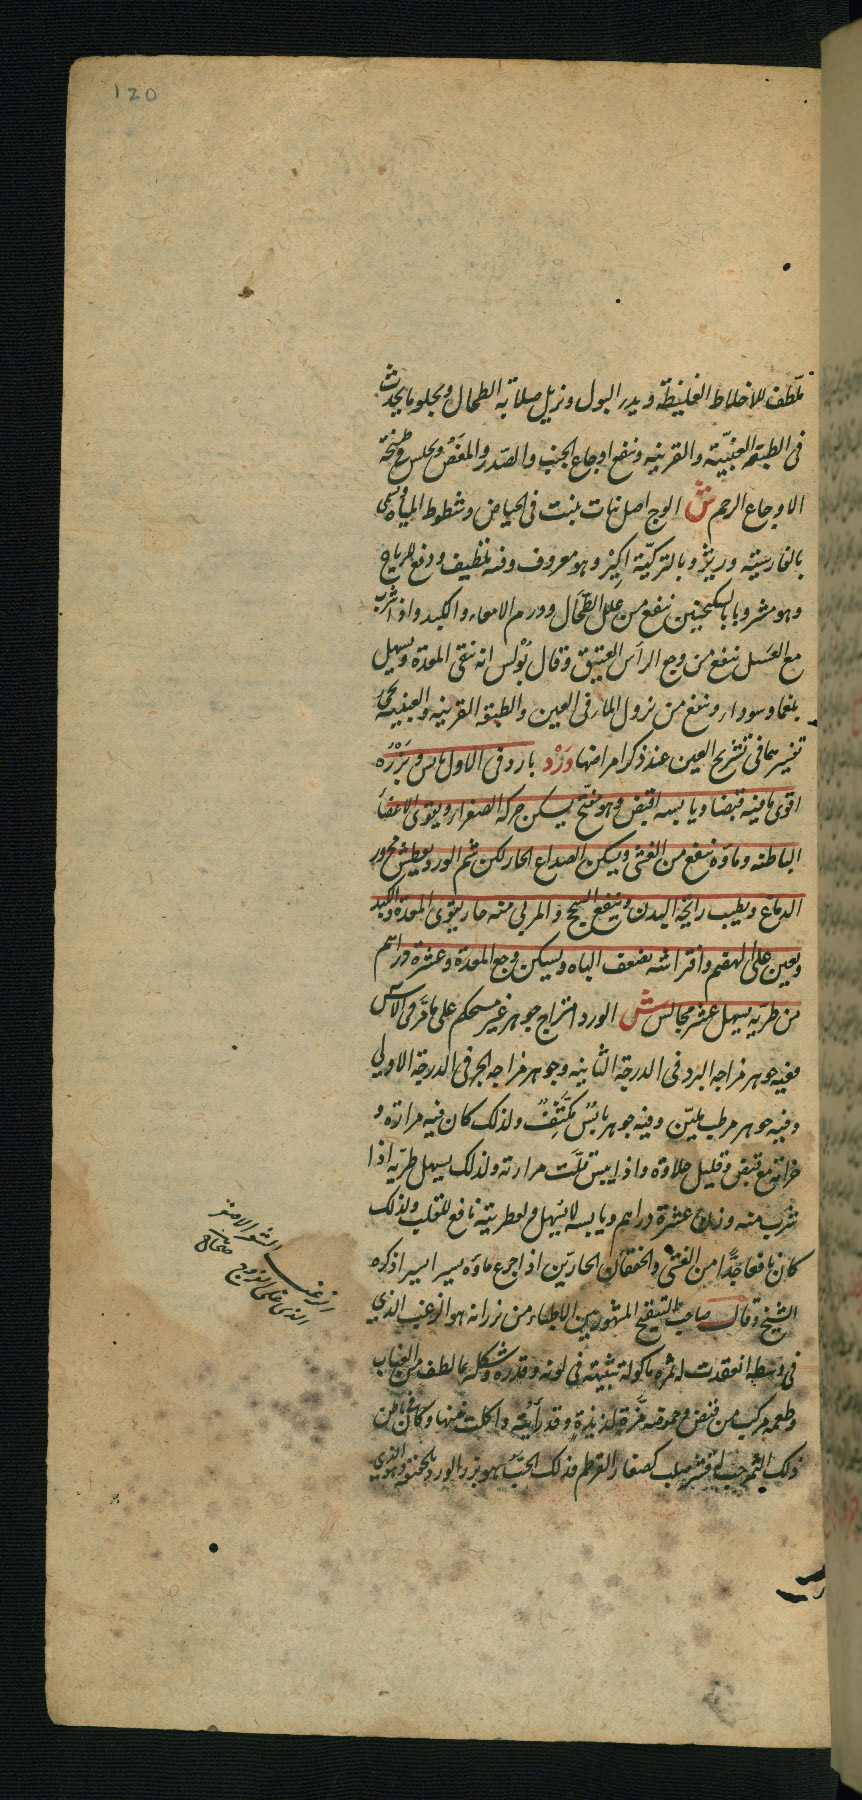 120
ملطف للاخلاط الغليظة ويدر البول ويزيل صلابة الطحال ويجلو ما يحدث
فى الطبقة العنبيّة والقرنيه وينفع اوجاع الجنب والصّدر والمغص ويجلس في طبيخة
الاوجاع الرحم ش الوج اصل نبات ينبت فى الحياض وشطوط المياه وسمى
بالفارسيته وبالتركيّة اكير وهو معروف وفيه تلطيف ودفع للرياح
وهو مشروبا بالسكنجبين ينفع من علل الطّحال وورم الامعاء والكبد واذا شرب
مع العسل ينفع من وجع الراس العتيق وقال بُولس انه ينقى المعدة ويسهل
بلغما وسوداء وينفع من نزول الماء فى العين والطبقه القرنيه والعنبيه
تفسيرهما فى تشريح العين عند ذكر امراضها وَرْد بارد فى الاول يابس وبَزْرُه
اقوى ما فيه قبضا ويابسه اقبض وهو مفتّح يسكن حركة الصفراء ويقوى الاعضاء
الباطنه وماؤه ينفع من الغشى ويسكن الصداع الحار لكن شم الورد يعطش محرور
الدماغ ويطيب رايحة البدن وينفع السحج والمربى منه حار يقوى المعدة والكبد
ويعين على الهضم وافتراشه يضعف الباه ويسكن وجع المعدة وعشرة دراهم
من طريّه يسهل عشر مجالس ش الورد امتزاج جوهر غير مستحكم على ما مَرّ فى الآس
ففيه جوهر مزاجه البرد فى الدرجة الثانيه وجوهر مزاجه الحر فى الدرجة الاولي
وفيه جوهر مرطب مليّن وفيه جوهر يابسٌ مُكَثِّفٌ ولذلك كان فيه مرارة و
حرافة مع قبض وقليل حلاوة واذا يبس قلّت مرارته ولذلك يسهل طريّه اذا
شرب منه وزن عشرة دراهم ويابسه لا يُسهل ولعطريته نافع للقلب ولذلك
كان نافعا جدًّا من الغشى والخفقان الحارّين اذا جرع ماؤه يسيرا يسيرا ذكره
الشيخ وقال صاحب التنقيح المشهور بين الاطباء من بزر انه هو الزغب الذي
فى وسطه انعقدت له ثمره ماكولة شبيهة فى لونه وقدره وشكله بما لطف من العناب
وطعمه مركب من قبض وحموضه مَرَّة لذيذة وقد رأيته واكلت منها وكان فى باطن
ذلك الثمر حب اقشر صلب كصغار القرطم فذلك الحبّ هو بزر الورد بالحقيقه وهو الذي
الزغب الشعر الاصفر
الذى على الفروج